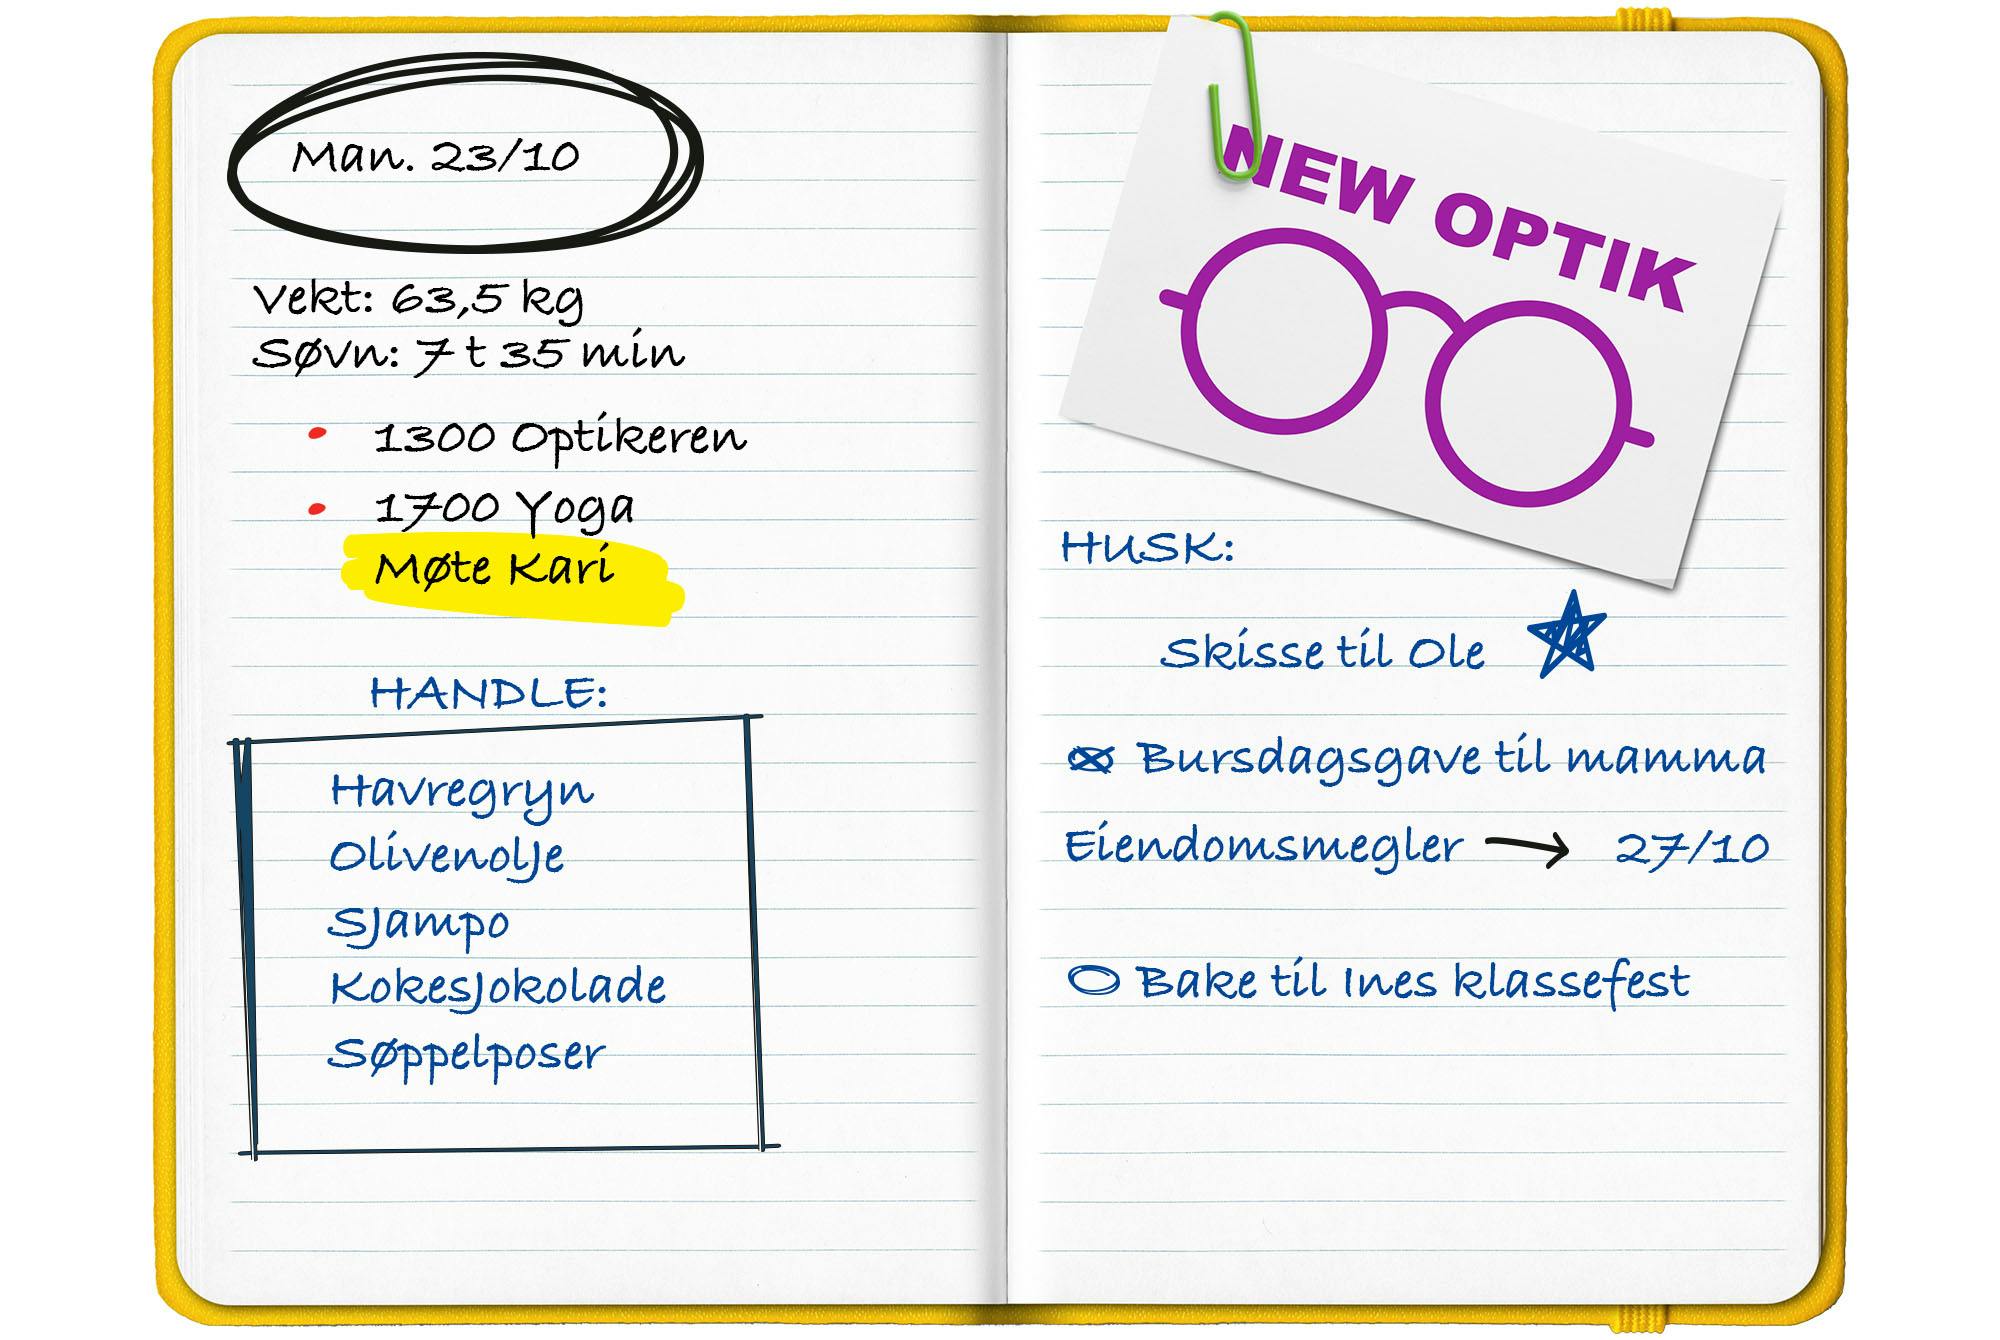 Man. 23/10
Vekt: 63,5 kg
Søvn: 7 t 35 min
1300 Optikeren
1700 Yoga
Møte Kari
HANDLE:
Havregryn
Olivenolje
Sjampo
Kokesjokolade
Søppelposer
NEW OPTIK
HUSK:
Skisse til Ole
Bursdagsgave til mamma
Eiendomsmegler → 27/10
Bake til Ines klassefest